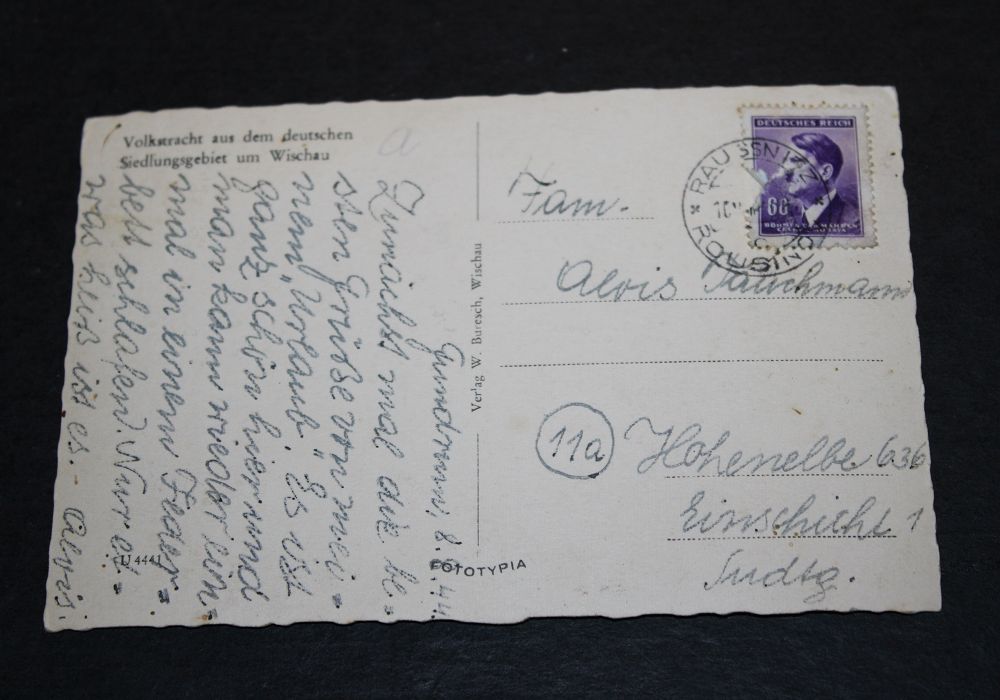 Volkstracht aus dem deutschen
Siedlungsgebiet um Wischau
a
8.
44.
Zunächst mal die be=
sten Grüße von mei=
nem "Urlaub". Es ist
ganz schön hier und
man kann wieder ein=
mal in einem Feder=
bett schlafen! Nur et=
was heiß ist es. Alois.
U 4441
Verlag W. Buresch, Wischau
FOTOTYPIA
DEUTSCHES REICH
60
BÖHMEN UND MÄHREN
ČECHY A MORAVA
RAUSSNITZ
ROUSÍNOV
Fam.
Alois
11a
Hohenelbe 636
Einschicht 1
Sudtg.